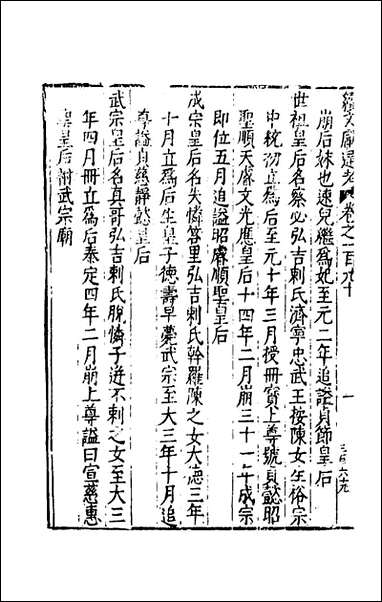 續文獻通考 卷之一百九十
崩后妹也速兒繼為妃至元二年追謚貞節皇后
世祖皇后名察必弘吉剌氏濟寧忠武王按陳女生裕宗
中統初立為后至元十年三月授冊寶上尊號貞懿昭
聖順天睿文光應皇后十四年二月崩三十一年成宗
即位五月追謚昭睿順聖皇后
成宗皇后名失憐答里弘吉剌氏斡羅陳之女大德三年
十月立為后生皇子德壽早薨武宗至大三年十月追
尊謚貞慈靜懿皇后
武宗皇后名真哥弘吉剌氏脫憐子迸不剌之女至大三
年四月冊立為后泰定四年二月崩上尊謚曰宣慈惠
聖皇后祔武宗廟
一